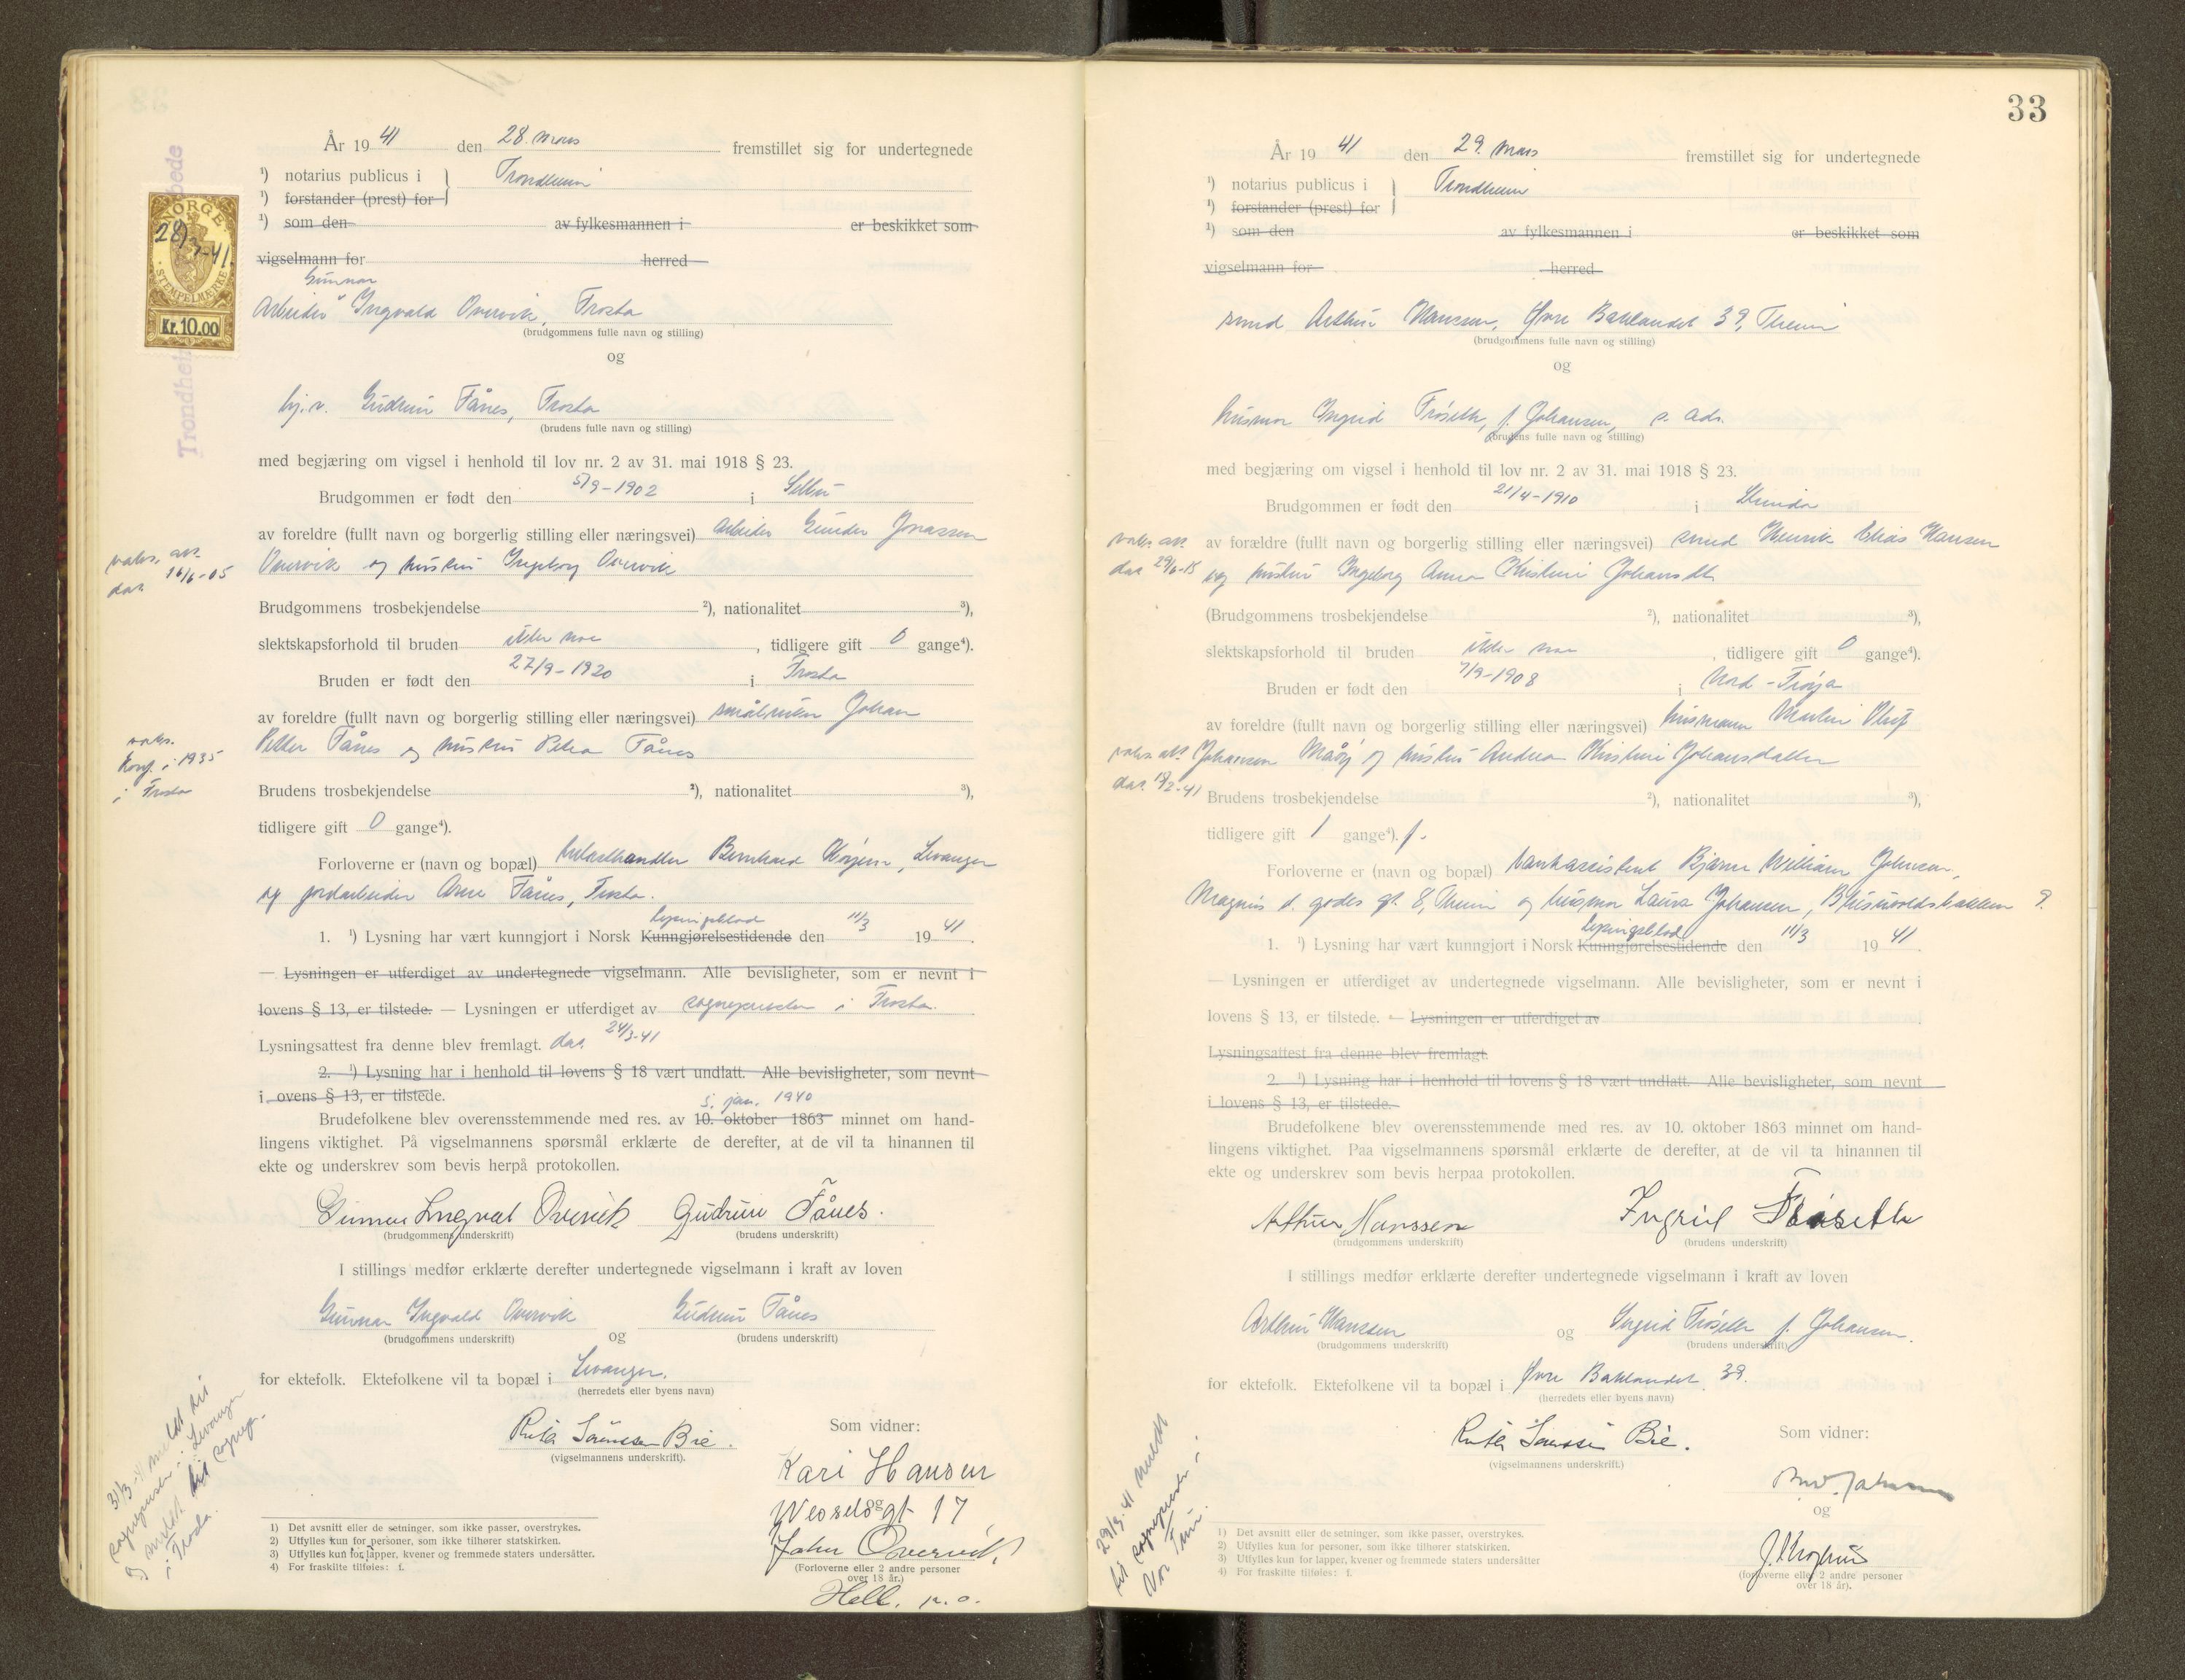 År 19 41 den 28. mars fremstillet sig for undertegnede
¹) notarius publicus i } Trondheim
¹) forstander (prest) for
¹) som den av fylkesmannen i er beskikket som
vigselmann for herred
NORGE
28/3-41
STEMPELMÆRKE
Kr. 10.00
Gunnar
Arbeider Ingvald Overvik, Frosta
(brudgommens fulle navn og stilling)
og
Gudrun Fånes, Frosta
(brudens fulle navn og stilling)
med begjæring om vigsel i henhold til lov nr. 2 av 31. mai 1918 § 23.
Brudgommen er født den 5/9-1902 i Selbu
av foreldre (fullt navn og borgerlig stilling eller næringsvei) arbeider Gunder Jonassen
Overvik og hustru Ingeborg Overvik
vaks. att.
dat. 16/6-05
Brudgommens trosbekjendelse ²), nationalitet ³),
slektskapsforhold til bruden uten noe, tidligere gift 0 gange⁴).
Bruden er født den 27/9-1920 i Frosta
av foreldre (fullt navn og borgerlig stilling eller næringsvei) småbruker Johan
Petter Fånes og hustru Petra Fånes
vaks.
konf. i 1935
i Frosta
Brudens trosbekjendelse ²), nationalitet ³),
tidligere gift 0 gange⁴).
Forloverne er (navn og bopæl) Bernhard Levanger
og jordarbeider Arne Fånes, Frosta.
Lysningsblad
1. ¹) Lysning har vært kunngjort i Norsk Kunngjørelsestidende den 11/3 19 41.
— Lysningen er utferdiget av undertegnede vigselmann. Alle bevisligheter, som er nevnt i
lovens § 13, er tilstede. — Lysningen er utferdiget av sognepresten i Frosta.
Lysningsattest fra denne blev fremlagt. dat. 24/3-41
2. ¹) Lysning har i henhold til lovens § 18 vært undlatt. Alle bevisligheter, som nevnt
i ovens § 13, er tilstede.
5. jan. 1940
Brudefolkene blev overensstemmende med res. av 10. oktober 1863 minnet om hand-
lingens viktighet. På vigselmannens spørsmål erklærte de derefter, at de vil ta hinannen til
ekte og underskrev som bevis herpå protokollen.
Gunnar Ingval Overvik Gudrun Fånes.
(brudgommens underskrift) (brudens underskrift)
I stillings medfør erklærte derefter undertegnede vigselmann i kraft av loven
Gunnar Ingvald Overvik Gudrun Fånes
(brudgommens underskrift) og (brudens underskrift)
for ektefolk. Ektefolkene vil ta bopæl i Levanger.
(herredets eller byens navn)
Ruth Sørenssen Bie.
(vigselmannens underskrift).
Som vidner:
Kari Hansen
Wesselsgt 17
og
John Overvik
(Forloverne eller 2 andre personer
over 18 år.)
Hell.
31/3-41 meldt til
sognepresten i Levanger
og meldt til sognepr.
i Frosta.
1) Det avsnitt eller de setninger, som ikke passer, overstrykes.
2) Utfylles kun for personer, som ikke tilhører statskirken.
3) Utfylles kun for lapper, kvener og fremmede staters undersåtter.
4) For fraskilte tilføies: f.
33
År 19 41 den 29. mars fremstillet sig for undertegnede
¹) notarius publicus i } Trondheim
¹) forstander (prest) for
¹) som den av fylkesmannen i er beskikket som
vigselmann for herred
smed Arthur Hanssen, Øvre Baklandet 39, Theim
(brudgommens fulle navn og stilling)
og
husmor Ingrid Frøseth, f. Johansen, s. adr.
(brudens fulle navn og stilling)
med begjæring om vigsel i henhold til lov nr. 2 av 31. mai 1918 § 23.
Brudgommen er født den 21/4-1910 i Strinda
av forældre (fullt navn og borgerlig stilling eller næringsvei) smed Henrik Elias Hansen
og hustru Ingeborg Anna Christine Johansdtr
vaks. att.
dat. 29/6-15
(Brudgommens trosbekjendelse ²), nationalitet ³),
slektskapsforhold til bruden uten noe, tidligere gift 0 gange⁴).
Bruden er født den 7/9-1908 i Nord-Frøya
av foreldre (fullt navn og borgerlig stilling eller næringsvei) husmann Martin Oluf
Johansen Måøy og hustru Andrea Kristine Johansdatter
vaks. att.
dat. 18/2-41
Brudens trosbekjendelse ²), nationalitet ³),
tidligere gift 1 gange⁴). f.
Forloverne er (navn og bopæl) bankassistent Bjarne William Johnsen,
Magnus d. godes gt. 8, Theim og husmor Laura Johansen, Bkusvoldsbakken 9.
Lysningsblad
1. ¹) Lysning har vært kunngjort i Norsk Kunngjørelsestidende den 11/3 19 41.
— Lysningen er utferdiget av undertegnede vigselmann. Alle bevisligheter, som er nevnt i
lovens § 13, er tilstede. — Lysningen er utferdiget av
Lysningsattest fra denne blev fremlagt.
2. ¹) Lysning har i henhold til lovens § 18 vært undlatt. Alle bevisligheter, som nevnt
i lovens § 13, er tilstede.
Brudefolkene blev overensstemmende med res. av 10. oktober 1863 minnet om hand-
lingens viktighet. Paa vigselmannens spørsmål erklærte de derefter, at de vil ta hinannen til
ekte og underskrev som bevis herpaa protokollen.
Arthur Hanssen Ingrid Frøseth
(brudgommens underskrift) (brudens underskrift)
I stillings medfør erklærte derefter undertegnede vigselmann i kraft av loven
Arthur Hanssen og Ingrid Frøseth f. Johansen.
(brudgommens underskrift) (brudens underskrift)
for ektefolk. Ektefolkene vil ta bopæl i Øvre Baklandet 39.
(herredets eller byens navn)
Ruth Sørenssen Bie.
(vigselmannens underskrift.)
Som vidner:
og
(forloverne eller 2 andre personer
over 18 år).
29/3-41 meldt
til sognepresten i
Vor Frue.
1) Det avsnitt eller de setninger, som ikke passer, overstrykes.
2) Utfylles kun for personer, som ikke tilhører statskirken.
3) Utfylles kun for lapper, kvener og fremmede staters undersåtter
4) For fraskilte tilføies: f.